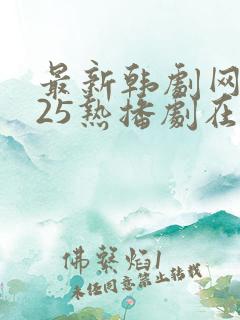 最新韩剧网
25热播剧在
佛系焰1
未经同意禁止转载